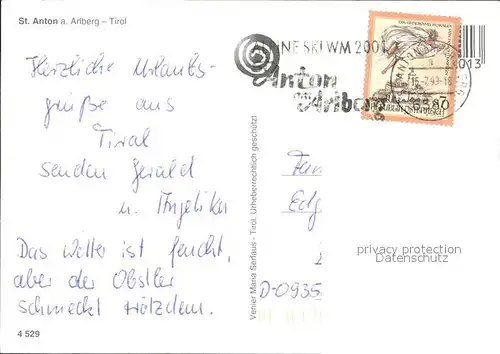 St. Anton a. Arlberg – Tirol
Herzliche Urlaubs-
grüße aus
Tirol
senden Gerald
u. Angelika
Das Wetter ist feucht,
aber der Obstler
schmeckt trotzdem.
4 529
Verlag Maria Serfaus - Tirol. Urheberrechtlich geschützt
PINE SKI WM 2001
Anton
am Arlberg
REPUBLIK ÖSTERREICH
013
Fam
Edg
D-0935
privacy protection
Datenschutz